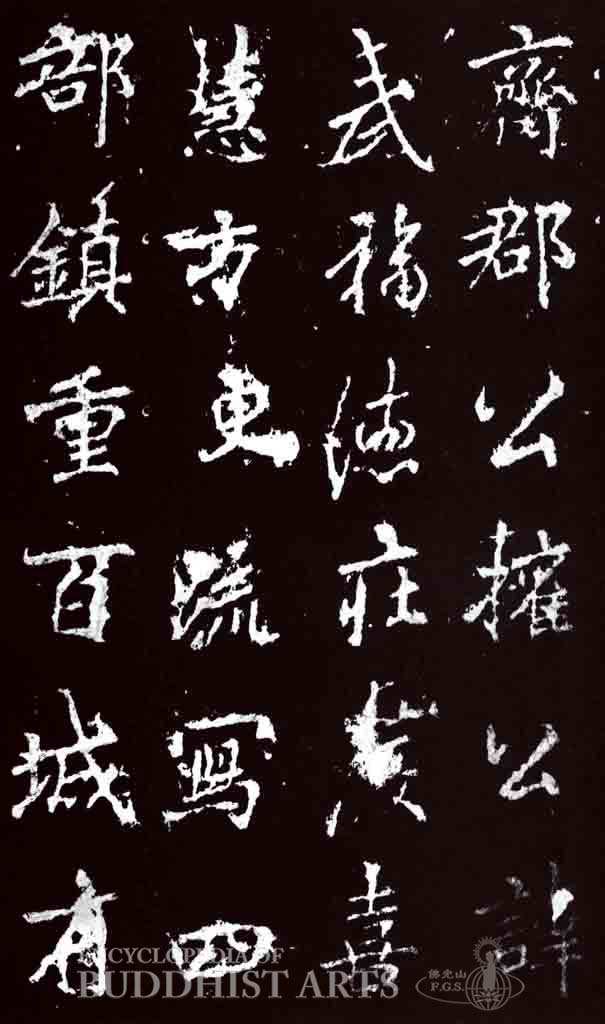 齊郡公權公諱
武福德莊嚴喜
慧方便疏寫四
部鎮重百城有
ENCYCLOPEDIA OF
BUDDHIST ARTS
佛光山
F.G.S.